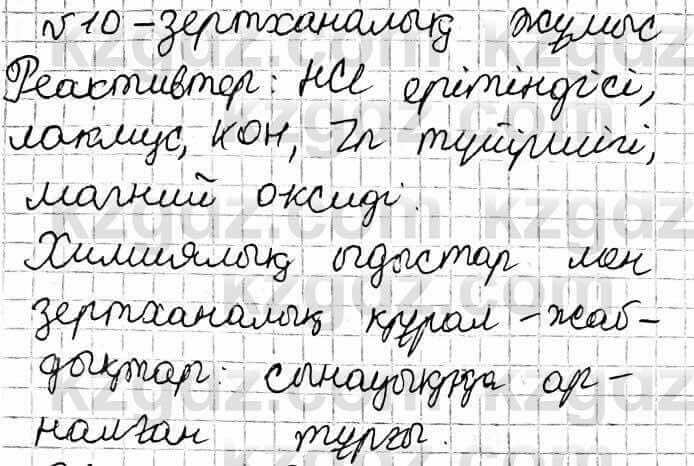 №10-зертханалық жұмыс
Реактивтер: HCl ерітіндісі,
лакмус, KOH, Zn түйіршігі,
магний оксиді.
Химиялық ыдыстар мен
зертханалық құрал-жаб-
дықтар: сынауыққа ар-
налған тұрғы.